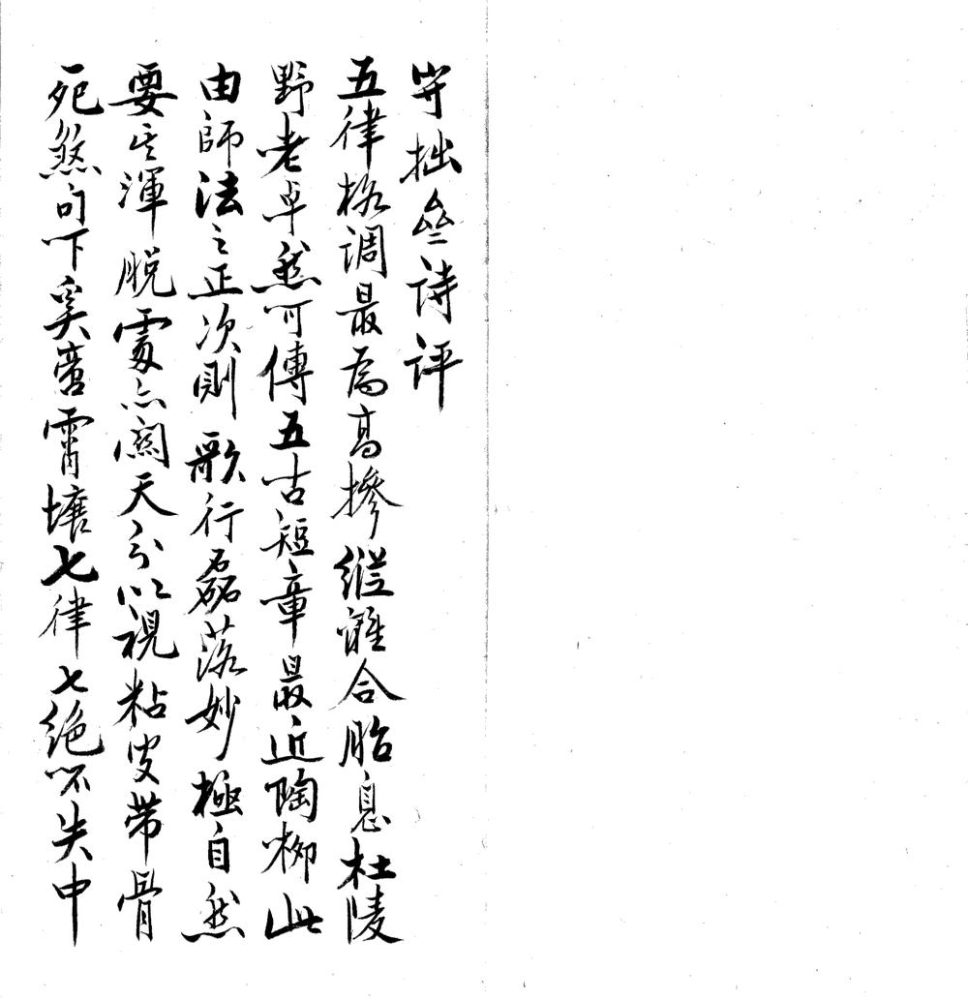 拙叁詩評
五律格調最為高操縱離合胎息杜陵
野老卓然可傳五古短章最近陶柳此
由師法之正次則歌行磊落妙極自然
要其渾脫處亦關天分以視粘皮帶骨
死煞句下奚啻霄壤七律七絕不失中